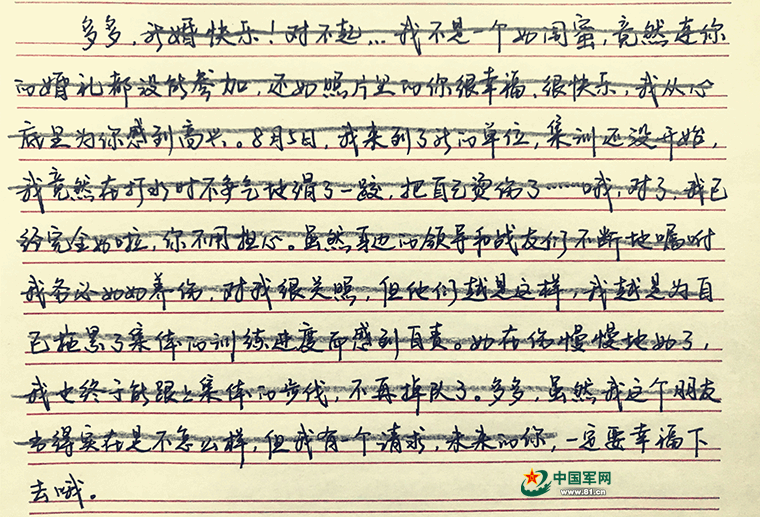 多多，新婚快乐！对不起...我不是一个好闺蜜，竟然连你
的婚礼都没能参加，还好照片里的你很幸福、很快乐，我从心
底里为你感到高兴。8月5日，我来到了新的单位，集训还没开始，
我竟然在打水时不争气地滑了一跤，把自己烫伤了……哦，对了，我已
经完全好啦，你不用担心。虽然身边的领导和战友们不断地嘱咐
我务必好好养伤，对我很关照，但他们越是这样，我越是为自
己拖累了集体的训练进度而感到自责。好在伤慢慢地好了，
我也终于能跟上集体的步伐，不再掉队了。多多，虽然我这个朋友
当得实在是不怎么样，但我有一个请求，未来的你，一定要幸福下
去哦。
中国军网
www.81.cn